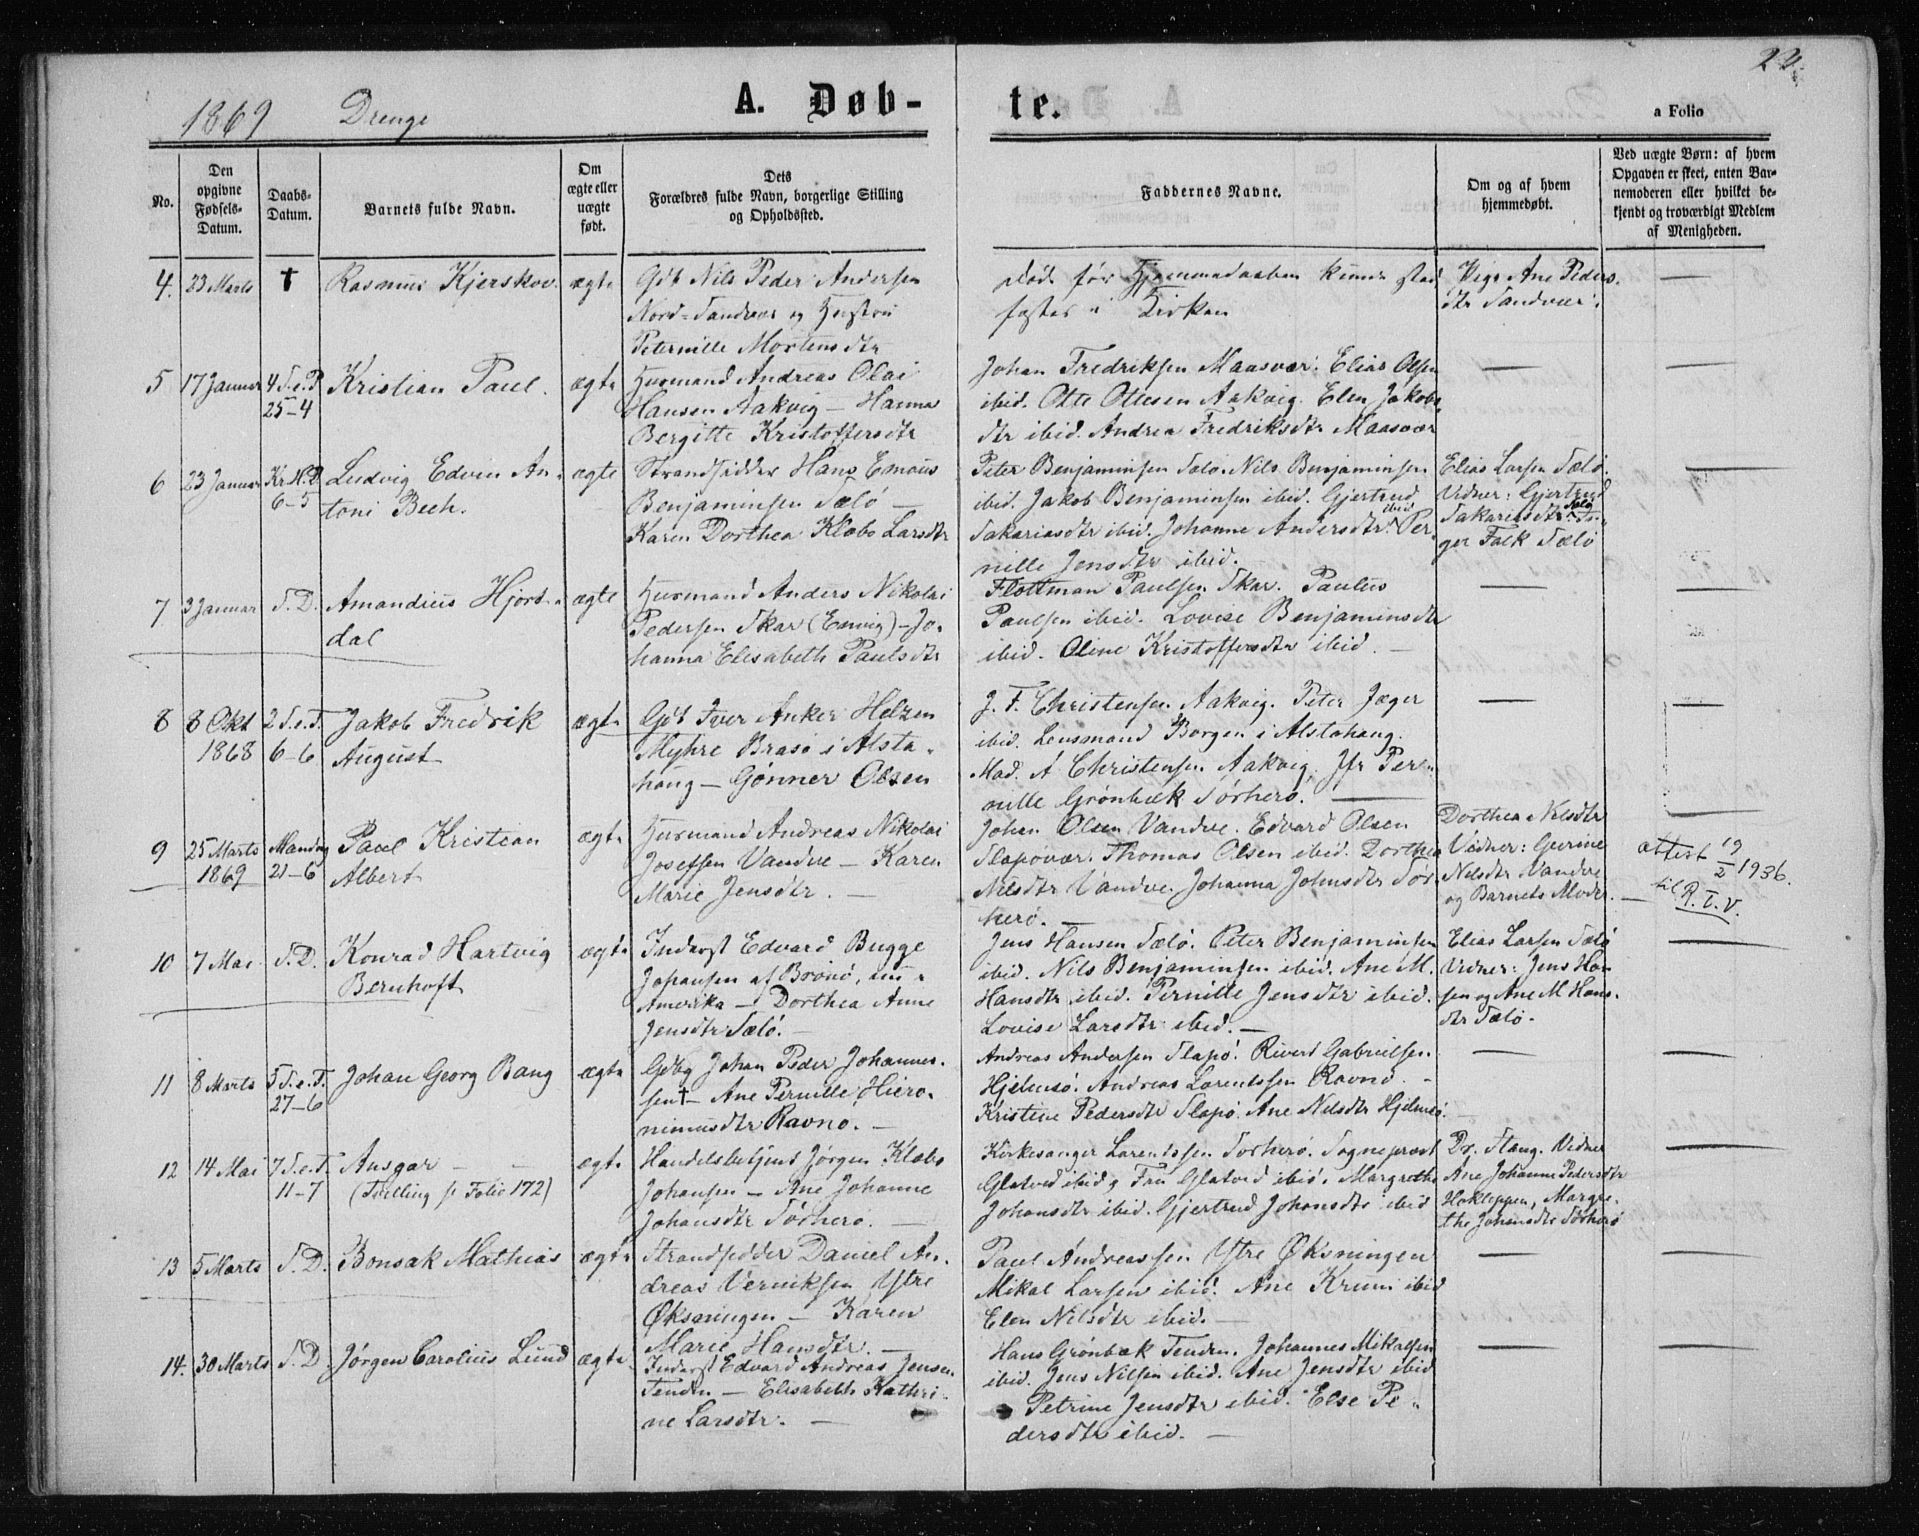 23
1869 Drenge
A. Døb-
te.
a Folio
No.
Den opgivne Fødsels-Datum.
Daabs-Datum.
Barnets fulde Navn.
Om ægte eller uægte født.
Dets Forældres fulde Navn, borgerlige Stilling og Opholdssted.
Faddernes Navne.
Om og af hvem hjemmedøbt.
Ved uægte Børn: af hvem Opgaven er skeet, enten Barnemoderen eller hvilket bekjendt og troværdigt Medlem af Menigheden.
4. 23 Marts † Rasmus Kjerskov. ægte
Gdb Nils Peder Andersen
Nord-Sandvær og Hustru
Peternille Mortensdtr
død før Hjemmedaaben kunde stad
fæstes i Kirken
Pige Ane Peders.
dtr Sandvær.
5 17 Januar 4 S. e. P. 25-4 Kristian Paul. ægte
Husmand Andreas Olai
Hansen Aakvig - Hanna
Bergitte Kristoffersdtr
Johan Fredriksen Maasvær. Elias Olsen
ibid. Otte Ottesen Aakvig. Elen Jakobs
dtr ibid. Andrea Fredriksdtr Maasvær
6 23 Januar Kr. H. D. 6-5 Ludvig Edvin An-
toni Bech. ægte
Strandsidder Hans Emaus
Benjaminsen Sælø -
Karen Dorthea Klæbo Larsdtr
Peter Benjaminsen Sælø. Nils Benjaminsen
ibid. Jakob Benjaminsen ibid. Gjertrud
Sakariasdtr ibid. Johanne Andersdtr ibid Per-
nille Jensdtr ibid.
Elias Larsen Sælø.
Vidner: Gjertrud
Sakariasdtr Sælø
ger Falk Sælø
7 3 Januar S. D. Amandius Hjort-
dal ægte
Husmand Anders Nikolai
Pedersen Skar (Emvig) - Jo-
hanna Elisabeth Paulsdtr
Flottman Paulsen Skar. Paulus
Paulsen ibid. Lovise Benjaminsdtr
ibid. Oline Kristoffersdtr ibid. -
8 8 Okt 1868 2 S. e. T. 6-6 Jakob Fredrik
August ægte
Gdb Iver Anker Helzen
Myhre Brasø i Alsta-
houg - Gønner Olsen
J. F. Christensen Aakvig. Peter Jæger
ibid. Lensmand Borgen i Alstahoug.
Mad. A Christensen Aakvig. Jfr Per-
nille Grønbæk Sørherø.
9 25 Marts 1869 Mandag 21-6 Paul Kristian
Albert ægte
Husmand Andreas Nikolai
Joseffen Vandve - Karen
Marie Jensdtr. -
Johan Olsen Vandve. Edvard Olsen
Slapøvær. Thomas Olsen ibid. Dorthea
Nilsdtr Vandve. Johanna Johnsdtr Sør-
herø. -
Dorthea Nilsdtr
Vidner: Gurine
Nilsdtr Vandve
og Barnets Moder.
attest 19/2 1936.
til R. T. V.
10 7 Mai S. D. Konrad Hartvig
Bernhoft ægte
Inderst Edvard Bugge
Johansen af Brønø, nu i
Amerika - Dorthea Anne
Jensdtr Sælø. -
Jens Hansen Sælø. Peter Benjaminsen
ibid. Nils Benjaminsen ibid. Ane M.
Hansdtr ibid. Pernille Jensdtr ibid.
Lovise Larsdtr ibid. -
Elias Larsen Sælø
Vidner: Jens Han-
sen og Ane M Hans-
dtr Sælø.
11 8 Marts 5 S. e. T. 27-6 Johan Georg Bang ægte
Gdbg Johan Peder Johannes-
sen † - Ane Pernille Hiero-
nimusdtr Ravnø. -
Andreas Andersen Slapø. Rivert Gabrielsen
Hjelmsø. Andreas Lorentssen Ravnø. -
Kristine Pedersdtr Slapø. Ane Nilsdtr Hjelmsø.
12 14 Mai 7 S. e. T. 11-7 Ansgar - -
(Tvilling se Folio 172) ægte
Handelsbetjent Jørgen Klæbo
Johansen - Ane Johanne
Johansdtr Sørherø. -
Kirkesanger Lorentssen Sørherø. Sogneprest
Glatved ibid og Fru Glatved ibid. Margrethe
Johansdtr ibid. Gjertrud Johansdtr ibid
Dr. Stang. Vidner
Ane Johanne Pedersdtr
Hokleppen, Margre-
the Johansdtr Sørherø
13 5 Marts S. D. Bonsak Mathias ægte
Strandsidder Daniel An-
dreas Verniksen Ytre
Øksningen - Karen
Marie Hansdtr. -
Paul Andreassen Ytre Øksningen
Mikal Larsen ibid. Ane Krum ibid
Elen Nilsdtr ibid. -
14. 30 Marts S. D. Jørgen Carolius Lund ægte
Inderst Edvard Andreas Jensen
Tenden - Elisabeth Kathri-
ne Larsdtr. -
Hans Grønbæk Tenden. Johannes Mikalsen
ibid. Jens Nilsen ibid. Ane Jensdtr ibid
Petrine Jensdtr ibid. Else Pe-
dersdtr ibid. -